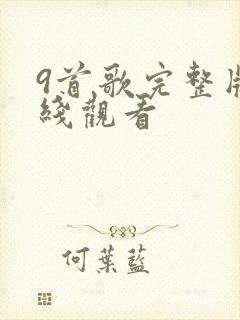 9首歌完整版
綫觀看
何葉藍